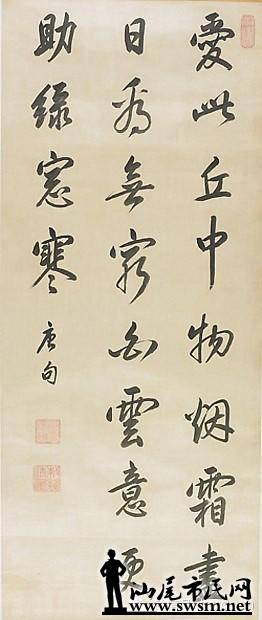 愛此丘中物烟霜盡
日看無窮白雲意更
助綠窻寒
唐句
汕尾市民网
www.swsm.net